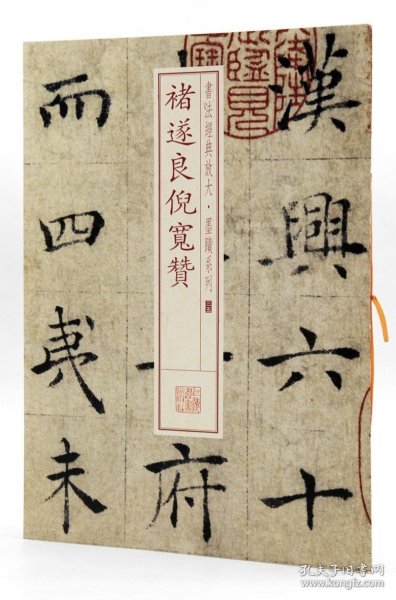 書法經典放大·墨蹟系列
褚遂良倪寬贊
漢興六十
府
而四夷未
孔夫子旧书网
www.kongfz.com